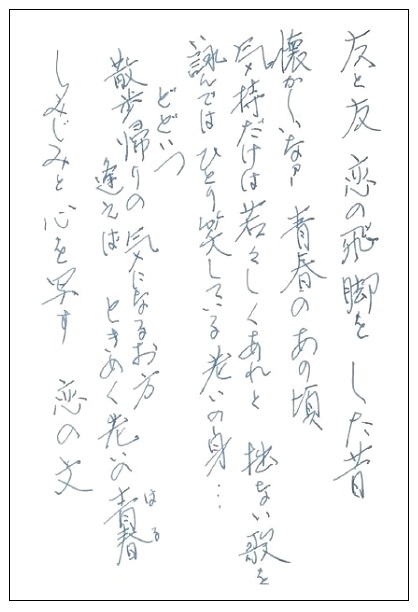 友と友 恋の飛脚を した昔
懐かしいな〜 青春の あの頃
気持だけは 若々しくあれと 拙ない歌を
詠んでは ひとり笑している 老いの身…
どどいつ
散歩帰りの 気になるお方
逢えば ときめく 老いの青春
はる
しみじみと 心を写す 恋の文